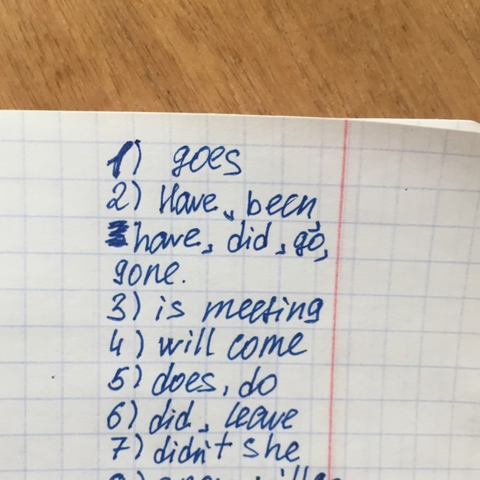 1) goes
2) Have, been,
have, did, go,
gone.
3) is meeting
4) will come
5) does, do
6) did, leave
7) didn't she